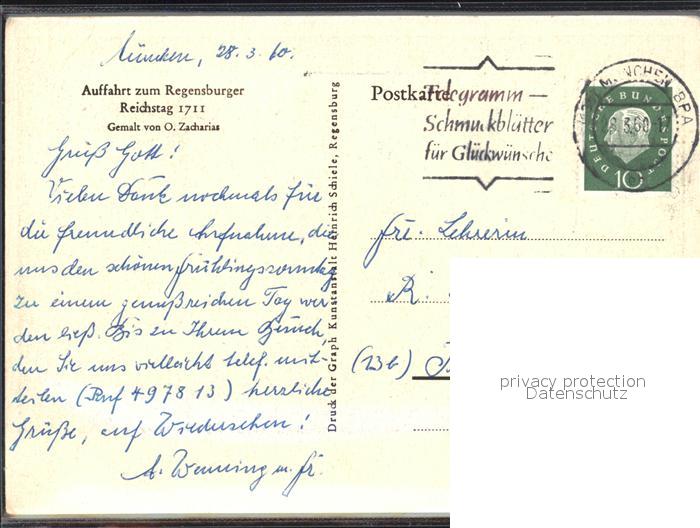 München, 28.3.60.
Auffahrt zum Regensburger
Reichstag 1711
Gemalt von O. Zacharias
Grüß Gott!
Vielen Dank nochmals für
die freundliche Aufnahme, die
uns den schönen Frühlingssonntag
zu einem genußreichen Tag wer
den ließ. Bis zu Ihrem Besuch,
den Sie uns vielleicht telef. mit-
teilen (Ruf 497813) herzliche
Grüße, auf Wiedersehen!
Druck der Graph Kunstanstalt Heinrich Schiele, Regensburg
Postkarte
Telegramm —
Schmuckblätter
für Glückwünsche
MÜNCHEN BPA
3.60
DEUTSCHE BUNDESPOST
10
Frl. Lehrerin
R.
(13b)
privacy protection
Datenschutz